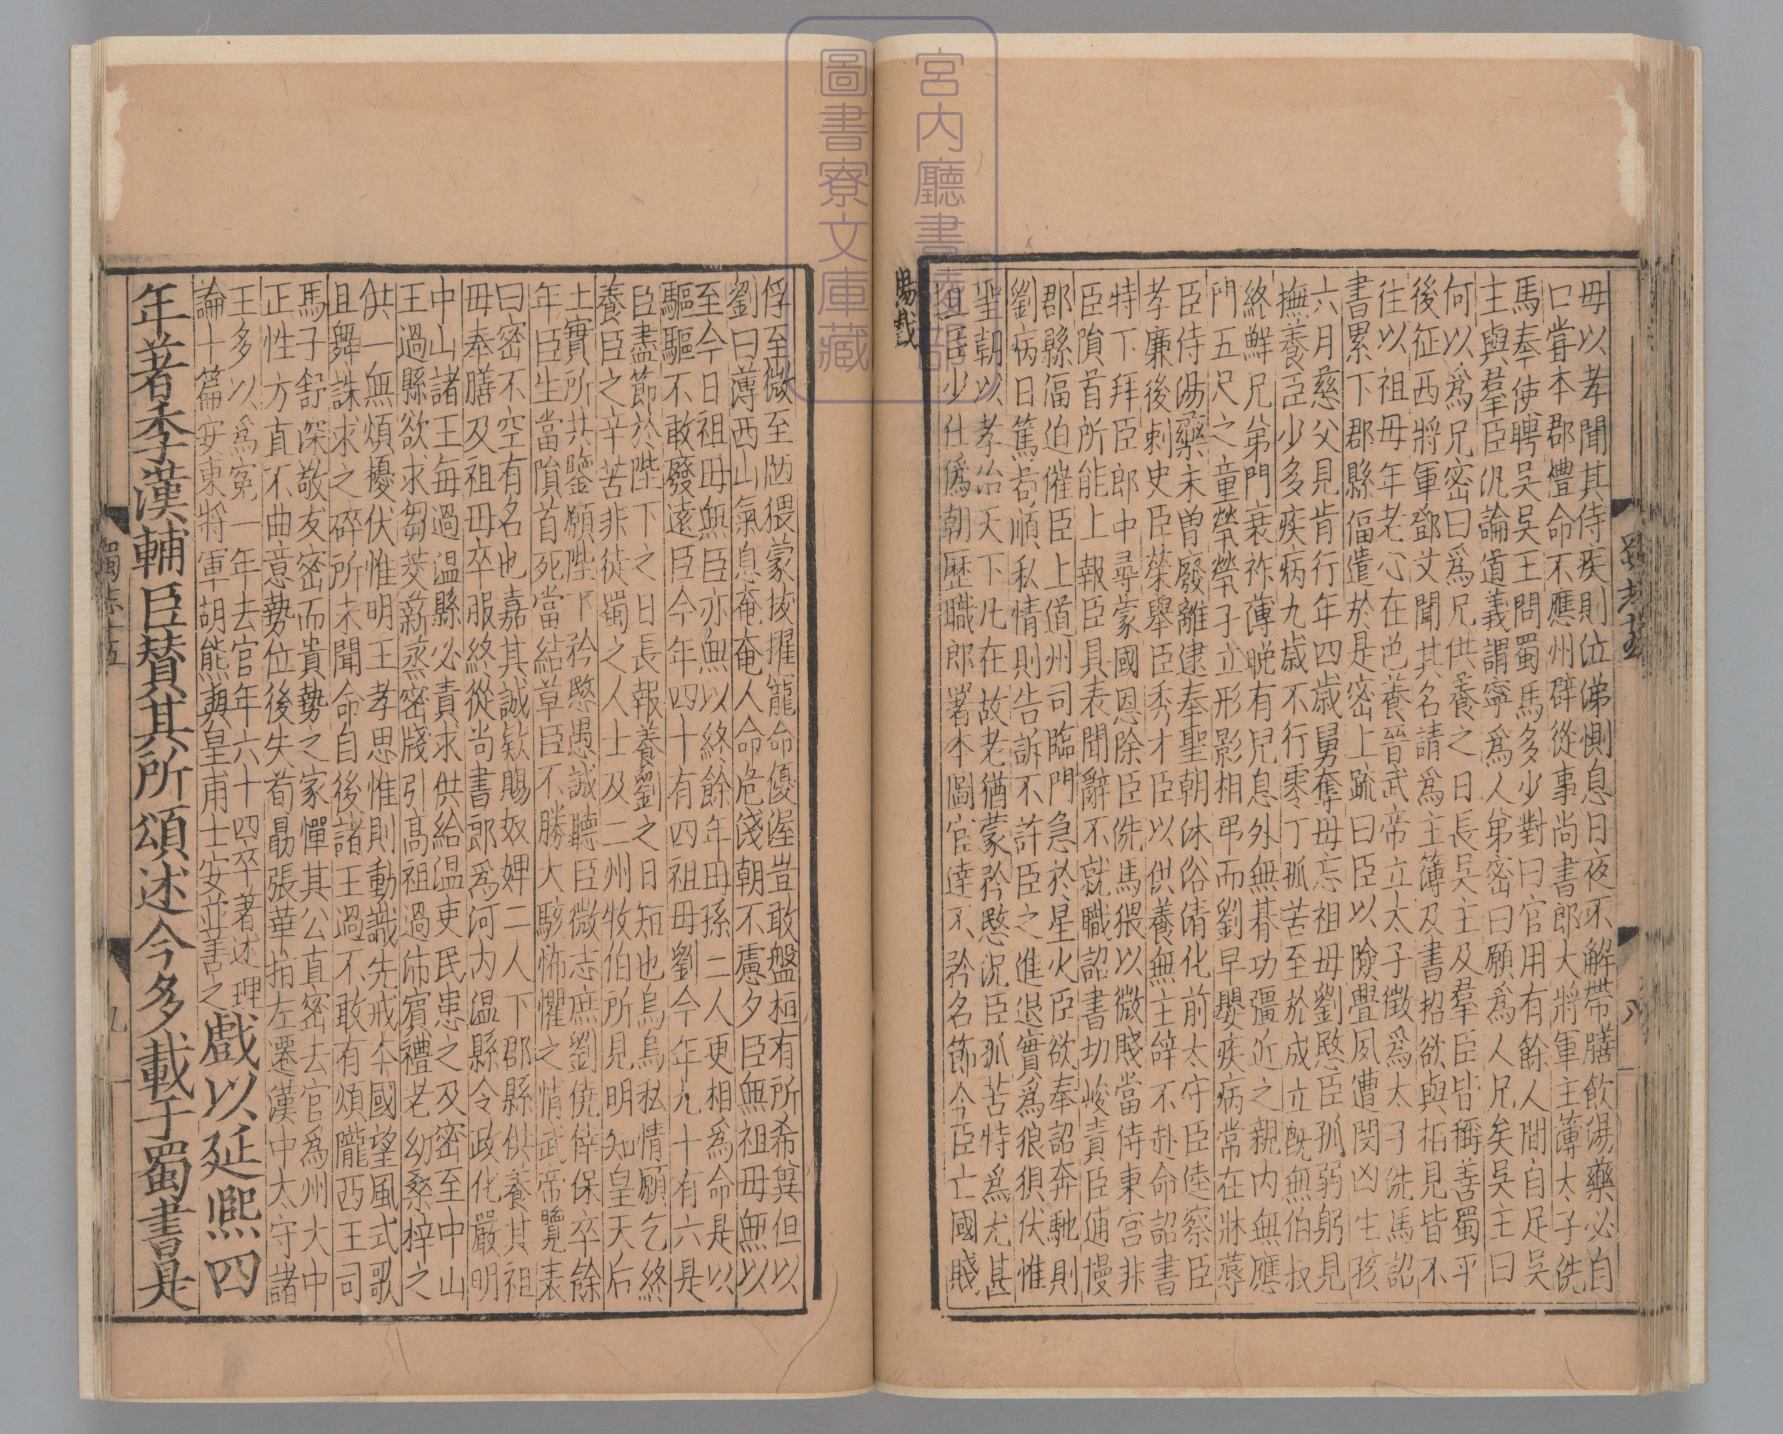 母以孝聞其侍疾則泣涕惻息日夜不解帶膳飲湯藥必自
口嘗本郡禮命不應州辟從事尚書郎大將軍主簿太子洗
馬奉使聘吳吳王問蜀馬多少對曰官用有餘人間自足吳
主與羣臣汎論道義謂寧爲人弟密曰願爲人兄矣吳主曰
何以爲兄密曰爲兄供養之日長吳主及羣臣皆稱善蜀平
後征西將軍鄧艾聞其名請爲主簿及書招欲與相見皆不
往以祖母年老心在色養晉武帝立太子徵爲太子洗馬詔
書累下郡縣偪遣於是密上疏曰臣以險釁夙遭閔凶生孩
六月慈父見背行年四歲舅奪母志祖母劉愍臣孤弱躬見
撫養臣少多疾病九歲不行零丁孤苦至於成立旣無伯叔
終鮮兄弟門衰祚薄晚有兒息外無朞功彊近之親內無應
門五尺之童煢煢孑立形影相弔而劉早嬰疾病常在牀蓐
臣侍湯藥未曾廢離逮奉聖朝沐浴清化前太守臣逵察臣
孝廉後刺史臣榮舉臣秀才臣以供養無主辭不赴命詔書
特下拜臣郎中尋蒙國恩除臣洗馬猥以微賤當侍東宮非
臣隕首所能上報臣具表聞辭不就職詔書切峻責臣逋慢
郡縣偪迫催臣上道州司臨門急於星火臣欲奉詔奔馳則
劉病日篤苟順私情則告訴不許臣之進退實爲狼狽伏惟
聖朝以孝治天下凡在故老猶蒙矜愍況臣孤苦特爲尤甚
且臣少仕僞朝歷職郎署本圖官達不矜名節今臣亡國賤
俘至微至陋猥蒙拔擢寵命優渥豈敢盤桓有所希冀但以
劉日薄西山氣息奄奄人命危淺朝不慮夕臣無祖母無以
至今日祖母無臣亦無以終餘年母孫二人更相爲命是以
驅驅不敢廢遠臣今年四十有四祖母劉今年九十有六是
臣盡節於陛下之日長報養劉之日短也烏鳥私情願乞終
養臣之辛苦非徒蜀之人士及二州牧伯所見明知皇天后
土實所共鑒願陛下矜愍愚誠聽臣微志庶劉僥倖保卒餘
年臣生當隕首死當結草臣不勝犬馬怖懼之情武帝覽表
曰密不空有名也嘉其誠欵賜奴婢二人下郡縣供養其祖
母奉膳及祖母卒服終從尚書郎爲河內溫縣令政化嚴明
中山諸王每過溫縣必責求供給溫吏民患之及密至中山
王過縣欲求芻茭薪蒸密牋引高祖過沛賓禮老幼桑梓之
供一無煩擾伏惟明王孝思惟則動識先戒本國望風式歌
且舞誅求之碎所未聞命自後諸王過不敢有煩隴西王司
馬子舒深敬友密而貴勢之家憚其公直密去官爲州大中
正性方直不曲意勢位後失荀勗張華指左遷漢中太守諸
王多以爲寃一年去官年六十四卒著述理
論十篇安東將軍胡熊與皇甫士安並善之戲以延熙四
年著季漢輔臣贊其所頌述今多載于蜀書是
楊戲
蜀志十五
八
蜀志十五
九
宮內廳書陵部
圖書寮文庫藏